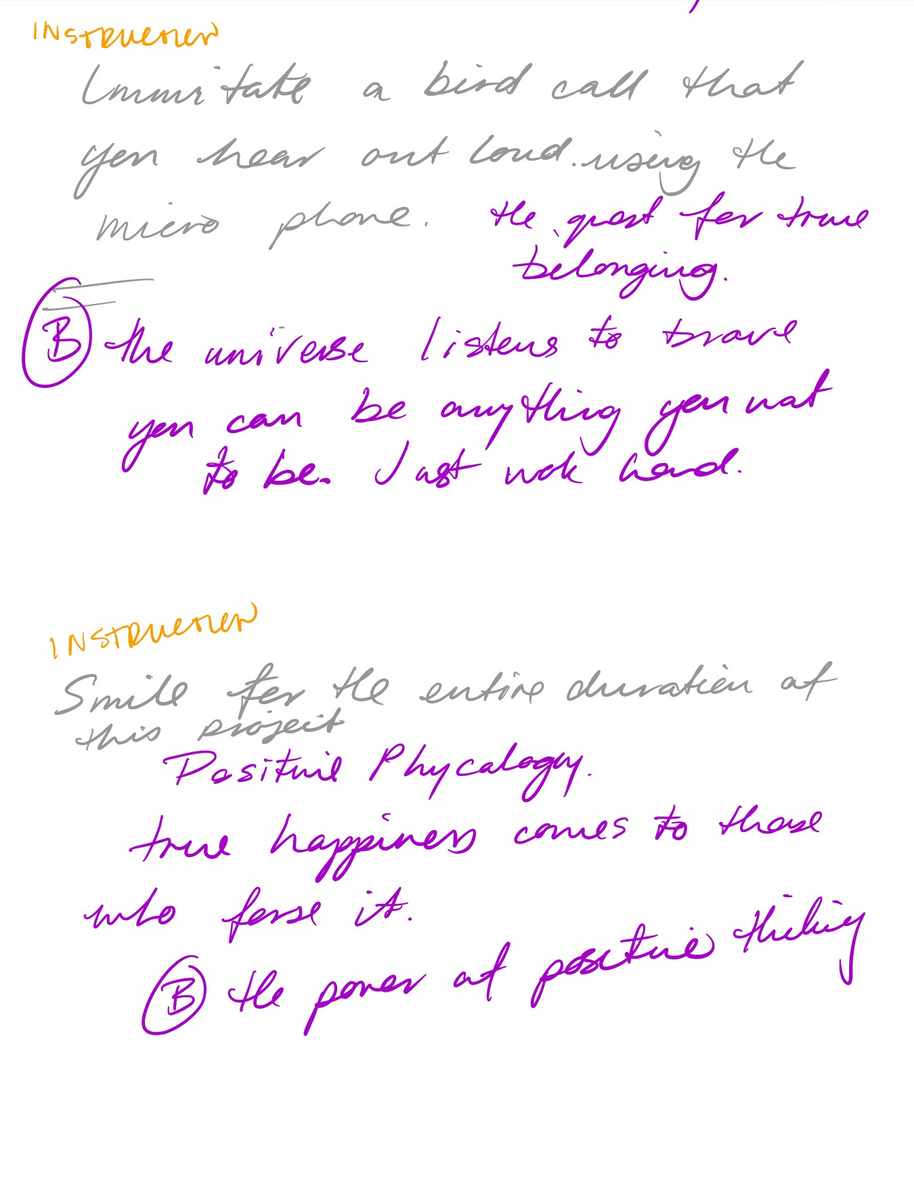 INSTRUCTION
Immitate a bird call that
you hear out loud. using the
micro phone.
the quest for true
belonging.
B the universe listens to brave
you can be anything you wat
to be. Just wok hard.
INSTRUCTION
Smile for the entire duration of
this project
Positive Phycology.
true happiness comes to those
who forse it.
B the power of positive thinking